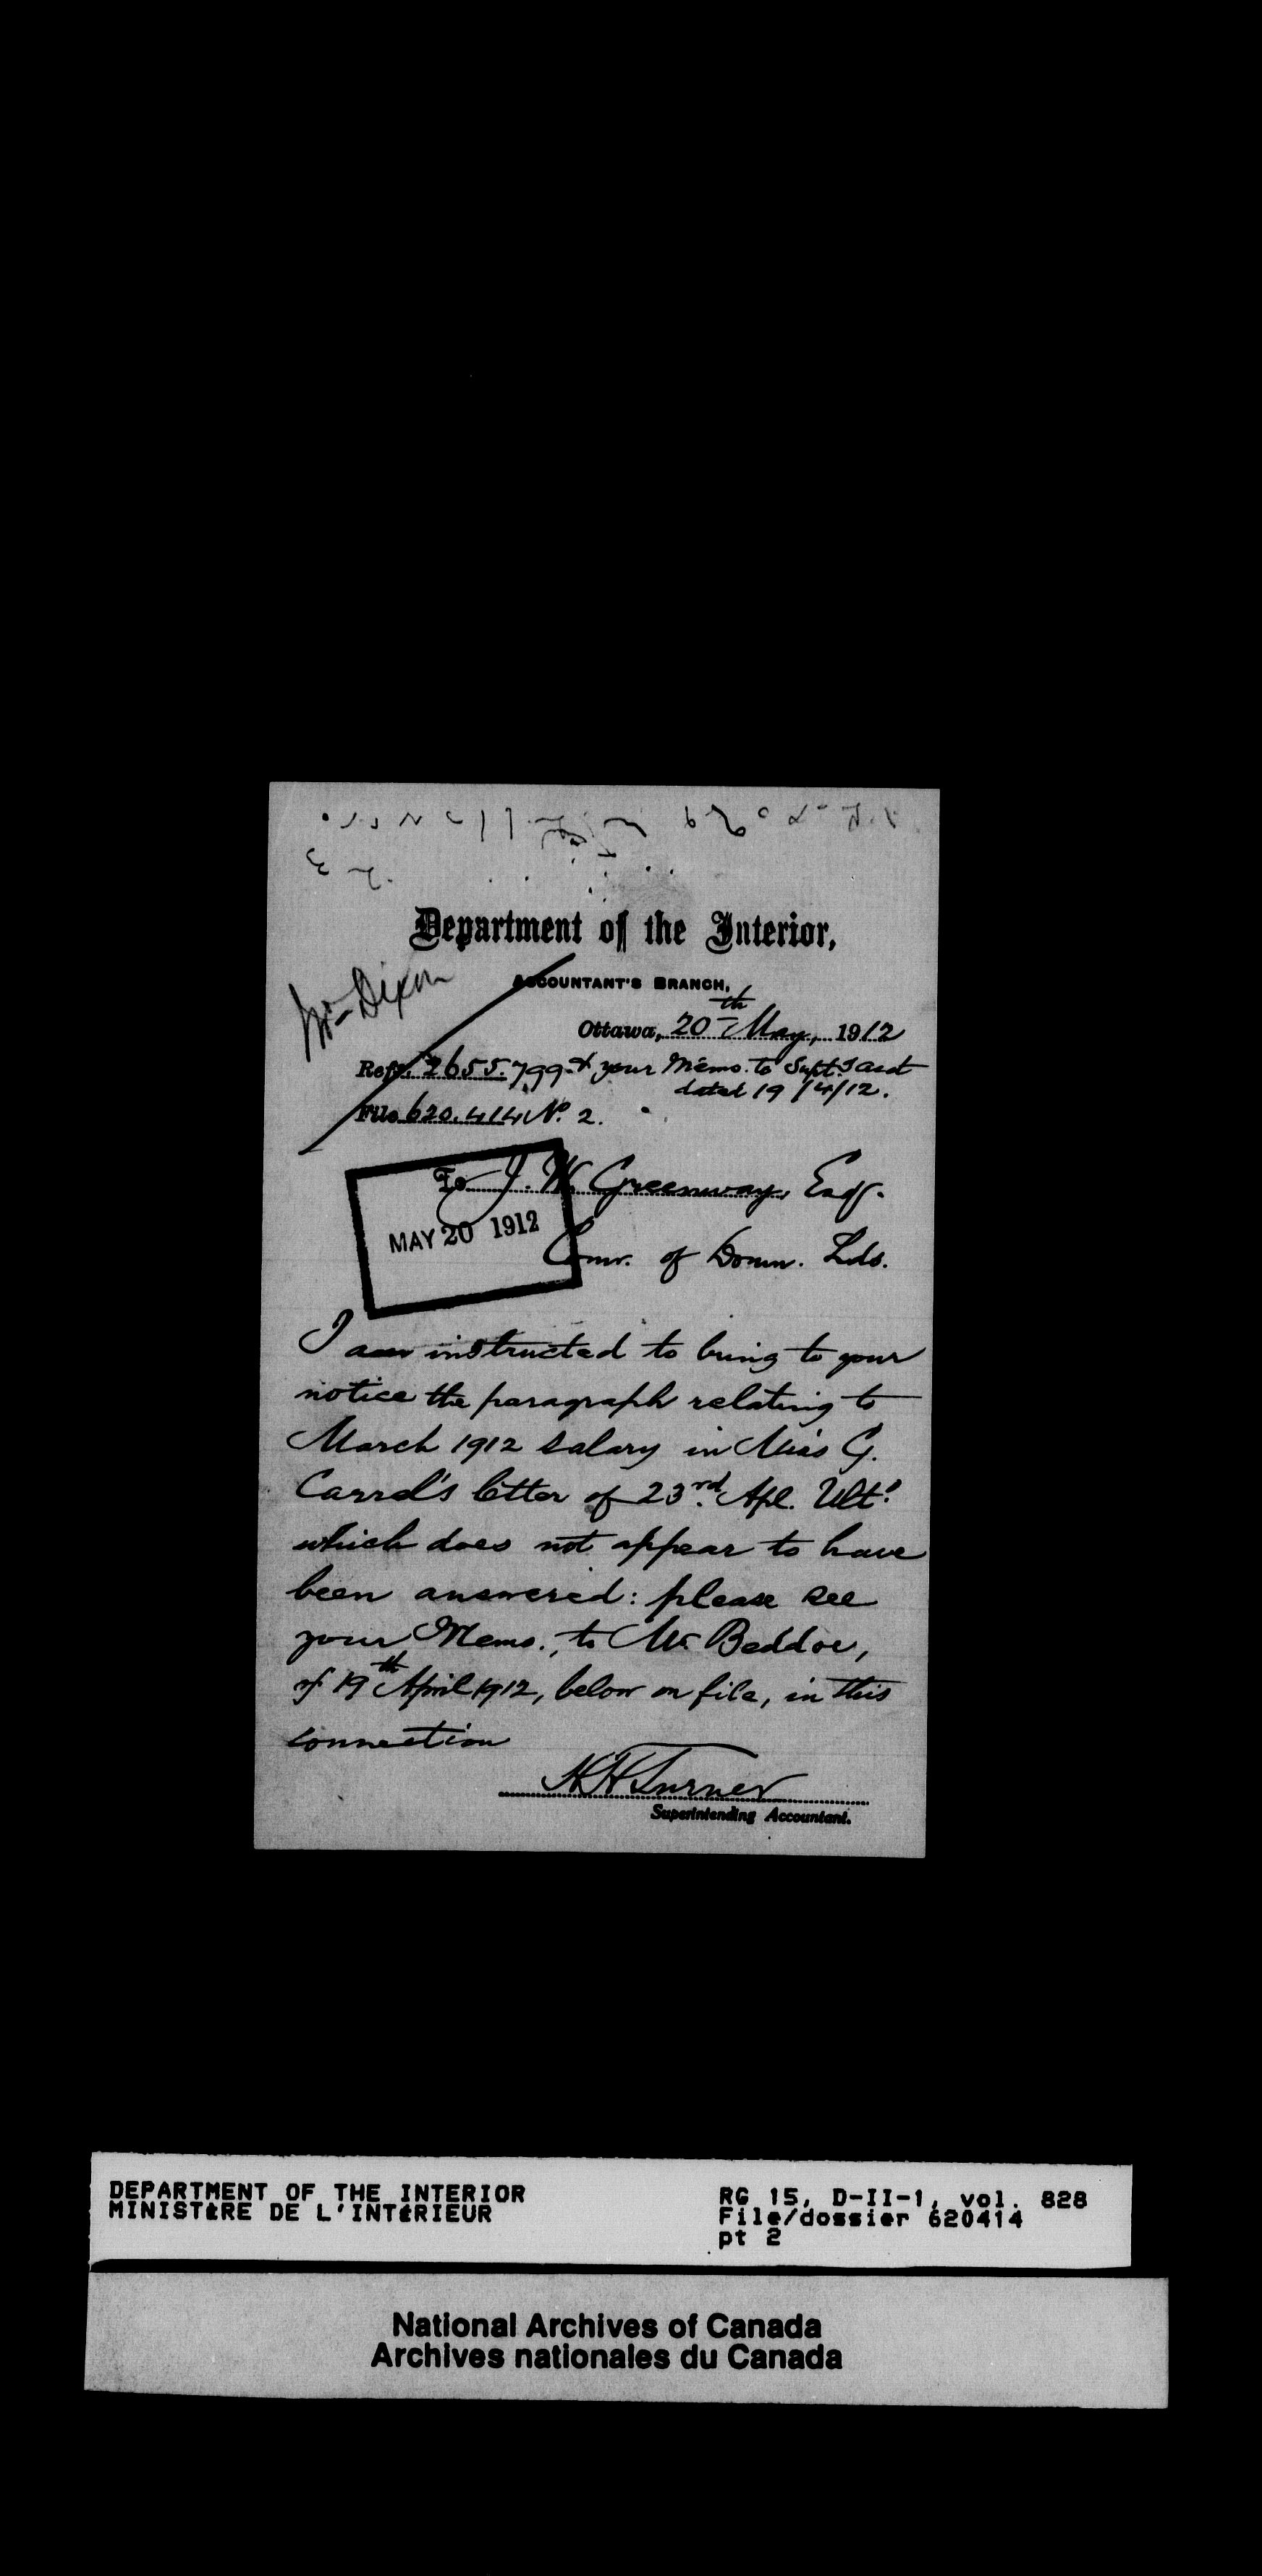 Department of the Interior,
ACCOUNTANT'S BRANCH,
Mr. Dixon
Ottawa, 20th May, 1912
Refr. 2655.799 & your Memo. to Supt. Acct
dated 19/4/12.
File 620.414 No. 2.
To J. W. Greenway, Esqr.
MAY 20 1912
Comr. of Domn. Lds.
I am instructed to bring to your
notice the paragraph relating to
March 1912 salary in Miss G.
Carrel's letter of 23rd. Apl. Ulto.
which does not appear to have
been answered: please see
your Memo., to Mr Beddoe,
of 19th April 1912, below on file, in this
connection
HHTurner
Superintending Accountant.
DEPARTMENT OF THE INTERIOR
MINISTÈRE DE L'INTÉRIEUR
RG 15, D-II-1, vol. 828
File/dossier 620414
pt 2
National Archives of Canada
Archives nationales du Canada